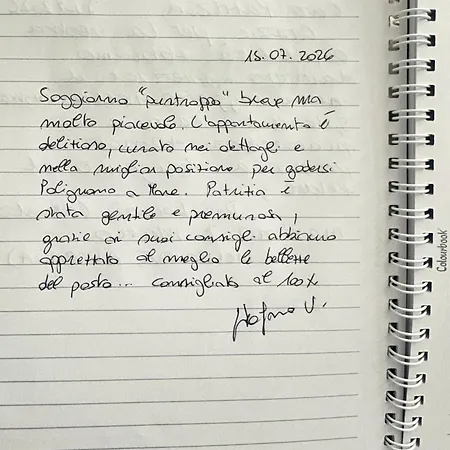 15.07.2026
Soggiorno "purtroppo" breve ma
molto piacevole. L'appartamento è
delizioso, curato nei dettagli e
nella miglior posizione per godersi
Polignano a Mare. Patrizia è
stata gentile e premurosa,
grazie ai suoi consigli abbiamo
apprezzato al meglio le bellezze
del posto... consigliato al 100%
Stefano V.
Colourbook